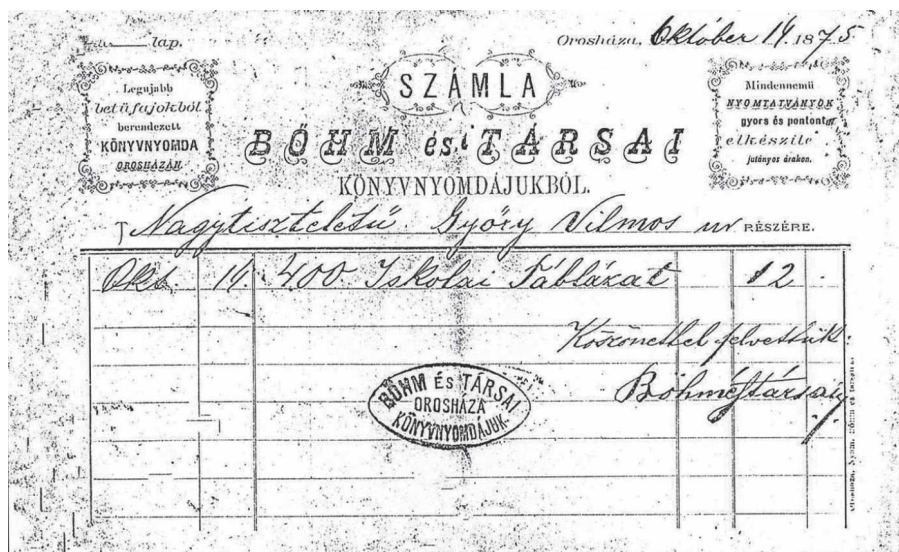 lap.
Orosháza, Október 14. 1875
Legujabb
betűfajokból
berendezett
KÖNYVNYOMDA
OROSHÁZÁN.
SZÁMLA
BŐHM és TÁRSAI
KÖNYVNYOMDÁJUKBÓL.
Mindennemü
NYOMTATVÁNYOK
gyors és pontontos
elkészíte
jutányos árakon.
T Nagytiszteletű Győry Vilmos ur RÉSZÉRE.
Okt. 14. 400. Iskolai Táblázat 12 .
Köszönettel felvettük
Böhm és társai
BŐHM ÉS TÁRSAI
OROSHÁZA
KÖNYVNYOMDÁJUK.
Nyom. Bőhm és